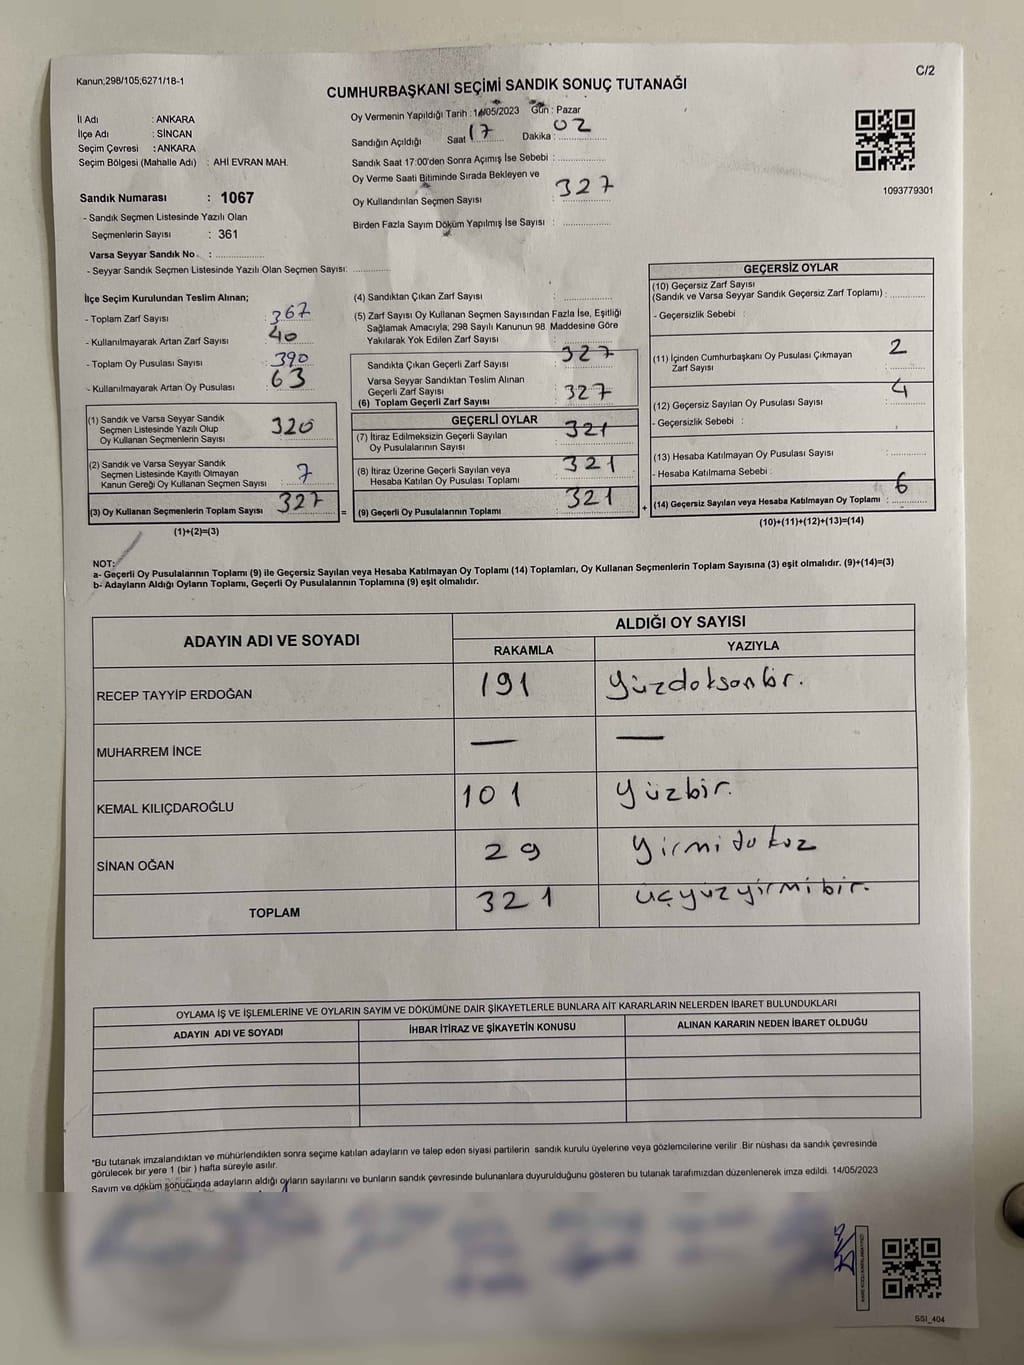 Kanun;298/105;6271/18-1
C/2
CUMHURBAŞKANI SEÇİMİ SANDIK SONUÇ TUTANAĞI
İl Adı : ANKARA
İlçe Adı : SİNCAN
Seçim Çevresi : ANKARA
Seçim Bölgesi (Mahalle Adı) : AHİ EVRAN MAH.
Sandık Numarası : 1067
- Sandık Seçmen Listesinde Yazılı Olan
Seçmenlerin Sayısı : 361
Varsa Seyyar Sandık No : ..................
- Seyyar Sandık Seçmen Listesinde Yazılı Olan Seçmen Sayısı: ............
Oy Vermenin Yapıldığı Tarih : 14/05/2023 Gün : Pazar
Sandığın Açıldığı Saat 17 Dakika : 02
Sandık Saat 17:00'den Sonra Açımış İse Sebebi : ................
Oy Verme Saati Bitiminde Sırada Bekleyen ve
Oy Kullandırılan Seçmen Sayısı : 327
Birden Fazla Sayım Döküm Yapılmış İse Sayısı : ................
1093779301
İlçe Seçim Kurulundan Teslim Alınan;
- Toplam Zarf Sayısı : 367
- Kullanılmayarak Artan Zarf Sayısı : 40
- Toplam Oy Pusulası Sayısı : 390
- Kullanılmayarak Artan Oy Pusulası : 63
(1) Sandık ve Varsa Seyyar Sandık
Seçmen Listesinde Yazılı Olup
Oy Kullanan Seçmenlerin Sayısı : 320
(2) Sandık ve Varsa Seyyar Sandık
Seçmen Listesinde Kayıtlı Olmayan
Kanun Gereği Oy Kullanan Seçmen Sayısı : 7
(3) Oy Kullanan Seçmenlerin Toplam Sayısı : 327
(1)+(2)=(3)
=
(4) Sandıktan Çıkan Zarf Sayısı : ................
(5) Zarf Sayısı Oy Kullanan Seçmen Sayısından Fazla İse, Eşitliği
Sağlamak Amacıyla; 298 Sayılı Kanunun 98. Maddesine Göre
Yakılarak Yok Edilen Zarf Sayısı
Sandıkta Çıkan Geçerli Zarf Sayısı : 327
Varsa Seyyar Sandıktan Teslim Alınan
Geçerli Zarf Sayısı
(6) Toplam Geçerli Zarf Sayısı : 327
GEÇERLİ OYLAR
(7) İtiraz Edilmeksizin Geçerli Sayılan
Oy Pusulalarının Sayısı : 321
(8) İtiraz Üzerine Geçerli Sayılan veya
Hesaba Katılan Oy Pusulası Toplamı : 321
(9) Geçerli Oy Pusulalarının Toplamı : 321
+
GEÇERSİZ OYLAR
(10) Geçersiz Zarf Sayısı
(Sandık ve Varsa Seyyar Sandık Geçersiz Zarf Toplamı) : ............
- Geçersizlik Sebebi :
(11) İçinden Cumhurbaşkanı Oy Pusulası Çıkmayan
Zarf Sayısı : 2
(12) Geçersiz Sayılan Oy Pusulası Sayısı : 4
- Geçersizlik Sebebi :
(13) Hesaba Katılmayan Oy Pusulası Sayısı : ............
- Hesaba Katılmama Sebebi :
(14) Geçersiz Sayılan veya Hesaba Katılmayan Oy Toplamı : 6
(10)+(11)+(12)+(13)=(14)
NOT:
a- Geçerli Oy Pusulalarının Toplamı (9) ile Geçersiz Sayılan veya Hesaba Katılmayan Oy Toplamı (14) Toplamları, Oy Kullanan Seçmenlerin Toplam Sayısına (3) eşit olmalıdır. (9)+(14)=(3)
b- Adayların Aldığı Oyların Toplamı, Geçerli Oy Pusulalarının Toplamına (9) eşit olmalıdır.
ADAYIN ADI VE SOYADI
ALDIĞI OY SAYISI
RAKAMLA YAZIYLA
RECEP TAYYİP ERDOĞAN 191 yüzdoksanbir.
MUHARREM İNCE — —
KEMAL KILIÇDAROĞLU 101 yüzbir.
SİNAN OĞAN 29 yirmidokuz
TOPLAM 321 üçyüzyirmibir.
OYLAMA İŞ VE İŞLEMLERİNE VE OYLARIN SAYIM VE DÖKÜMÜNE DAİR ŞİKAYETLERLE BUNLARA AİT KARARLARIN NELERDEN İBARET BULUNDUKLARI
ADAYIN ADI VE SOYADI İHBAR İTİRAZ VE ŞİKAYETİN KONUSU ALINAN KARARIN NEDEN İBARET OLDUĞU
*Bu tutanak imzalandıktan ve mühürlendikten sonra seçime katılan adayların ve talep eden siyasi partilerin sandık kurulu üyelerine veya gözlemcilerine verilir .Bir nüshası da sandık çevresinde
görülecek bir yere 1 (bir ) hafta süreyle asılır.
Sayım ve döküm sonucunda adayların aldığı oyların sayılarını ve bunların sandık çevresinde bulunanlara duyurulduğunu gösteren bu tutanak tarafımızdan düzenlenerek imza edildi. 14/05/2023
SSI_404